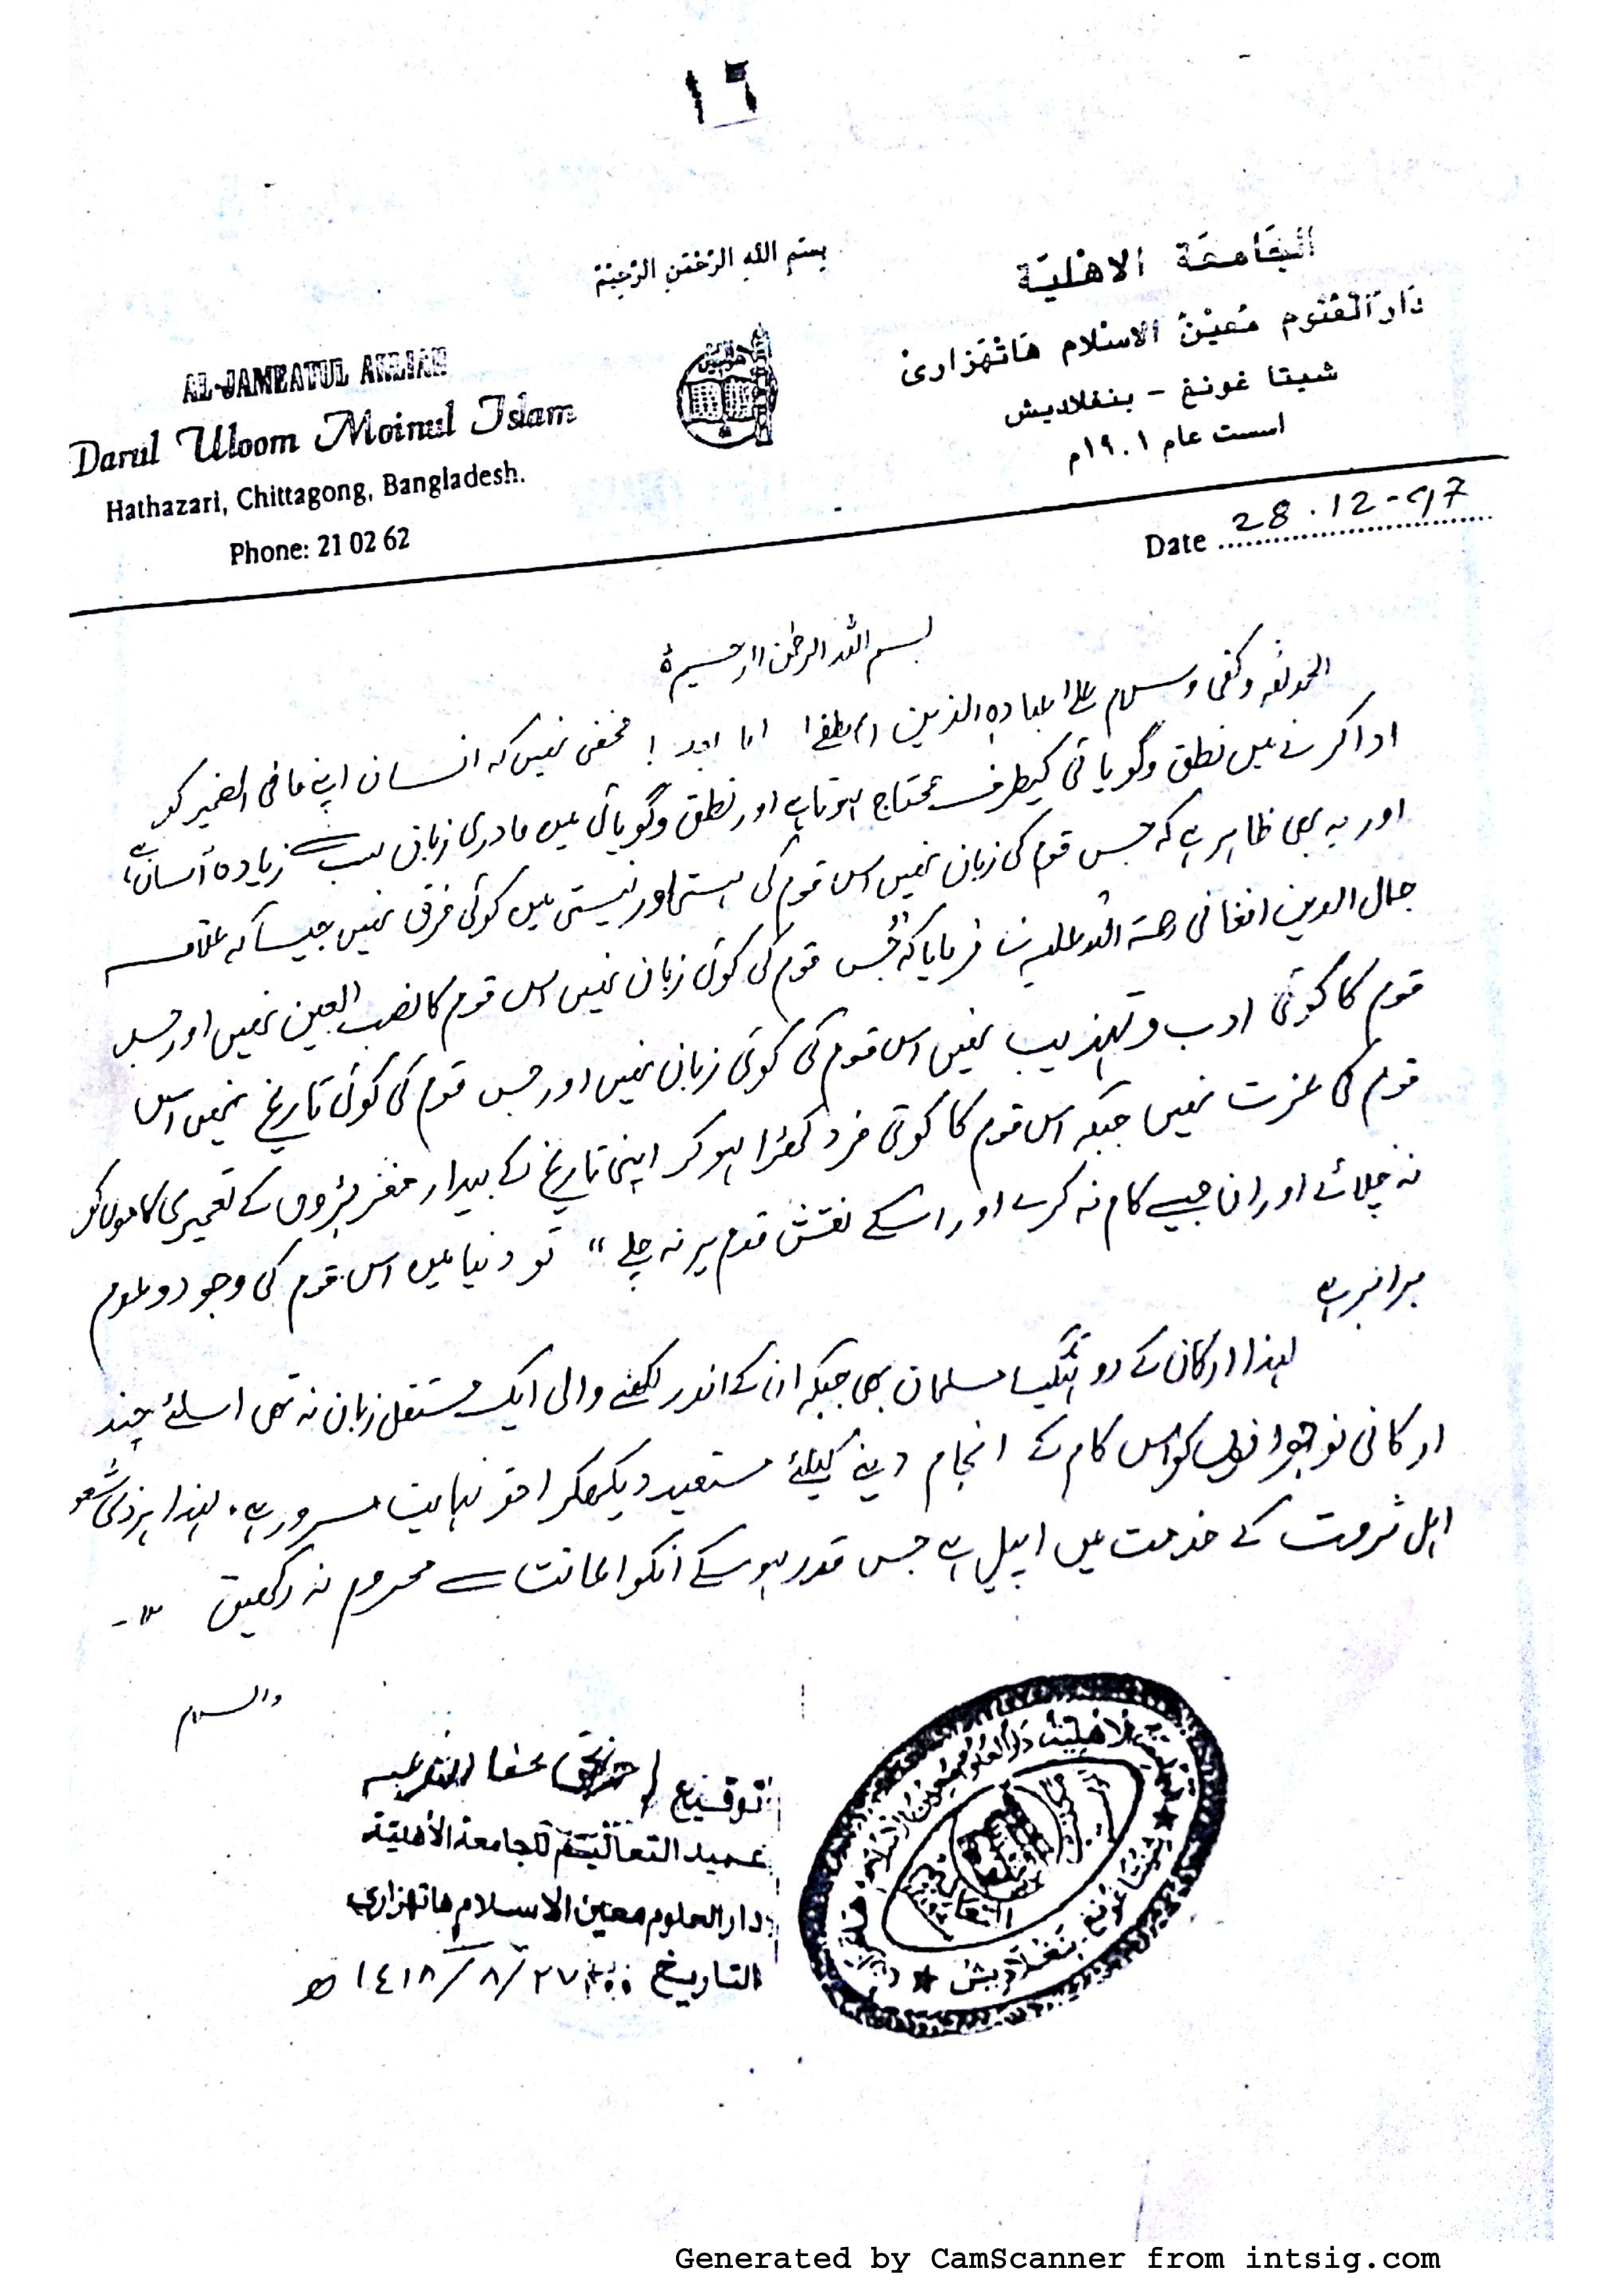 ١٦
بِسْمِ اللهِ الرَّحْمٰنِ الرَّحِيْمِ
الجَامعَة الاهْليَة
دَارُ الْعُلُوم مُعِيْنُ الاسْلام هَاتْهَزَارِىْ
شيتا غونغ - بنغلاديش
اسست عام ١٩٠١م
AL-JAMEATUL AHLIAH
Darul Uloom Moinul Islam
Hathazari, Chittagong, Bangladesh.
Phone: 21 02 62
Date 28.12-97
بسم اللہ الرحمٰن الرحیم
الحمدللہ وکفی وسلام علی عبادہ الذین اصطفی اما بعد! مخفی نہیں کہ انسان اپنے ما فی الضمیر کو
ادا کرنے میں نطق وگویائی کیطرف محتاج ہوتا ہے اور نطق وگویائی میں مادری زبان سب سے زیادہ آسان ہے
اور یہ بھی ظاہر ہے کہ جس قوم کی زبان نہیں اس قوم کی ہستی اور نیستی میں کوئی فرق نہیں جیسا کہ علامہ
جمال الدین افغانی رحمۃ اللہ علیہ نے فرمایا کہ "جس قوم کی کوئی زبان نہیں اس قوم کا نصب العین نہیں اور جس
قوم کا کوئی ادب و تہذیب نہیں اس قوم کی کوئی زبان نہیں اور جس قوم کی کوئی تاریخ نہیں اس
قوم کی عزت نہیں جبکہ اس قوم کا کوئی فرد کھڑا ہو کر اپنی تاریخ کے بیدار مغز بڑوں کے تعمیری کاموں کو
نہ چلائے اور ان جیسے کام نہ کرے اور اسکے نقش قدم پر نہ چلے" تو دنیا میں اس قوم کی وجود وعدم
برابر ہے
لہذا ارکان کے روہنگیا مسلمان بھی جبکہ ان کے اندر لکھنے والی ایک مستقل زبان نہ تھی اسلئے چند
ارکانی نوجوانوں کو اس کام کے انجام دینے کیلئے مستعد دیکھکر احقر نہایت مسرور ہے۔ لہذا ہر ذی شعور
اہل ثروت کے خدمت میں اپیل ہے جس قدر ہو سکے انکو اعانت سے محروم نہ رکھیں
والسلام
توقيع عفا اللہ عنہ
عميد التعاليم للجامعة الأهلية
دار العلوم معين الاسلام هاتهزاري
التاريخ ٢٧/٨/١٤١٨ ھ
Generated by CamScanner from intsig.com